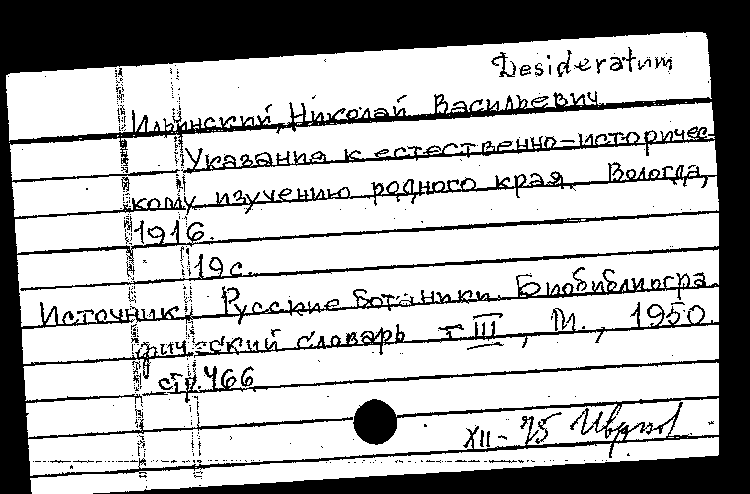 Desideratum
Ильинский, Николай Васильевич
Указания к естественно-историчес-
кому изучению родного края. Вологда,
1916.
19 с.
Источник: Русские ботаники. Биобиблиогра
фический словарь т. III, М., 1950.
стр. 466
XII - 75